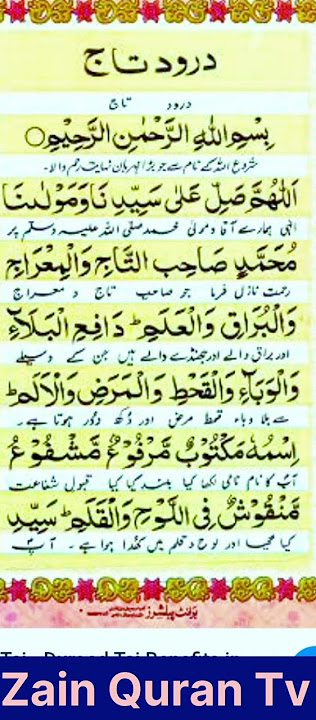 درود تاج
درود تاج
بِسْمِ اللهِ الرَّحْمٰنِ الرَّحِيْمِ
شروع اللہ کے نام سے جو بڑا مہربان نہایت رحم والا۔
اَللّٰهُمَّ صَلِّ عَلٰى سَيِّدِنَا وَمَوْلٰىنَا
الٰہی ہمارے آقا و مولیٰ محمد صلی اللہ علیہ وسلم پر
مُحَمَّدٍ صَاحِبِ التَّاجِ وَالْمِعْرَاجِ
رحمت نازل فرما جو صاحب تاج و معراج
وَالْبُرَاقِ وَالْعَلَمِ ط دَافِعِ الْبَلَآءِ
اور براق والے اور جھنڈے والے ہیں جن کے وسیلے
وَالْوَبَآءِ وَالْقَحْطِ وَالْمَرَضِ وَالْاَلَمِ ط
سے بلا وباء قحط مرض اور دُکھ دُور ہوتا ہے۔
اِسْمُهٗ مَكْتُوْبٌ مَّرْفُوْعٌ مَّشْفُوْعٌ
آپ کا نام نامی لکھا گیا بلند کیا گیا قبول شفاعت
مَّنْقُوْشٌ فِى اللَّوْحِ وَالْقَلَمِ ط سَيِّدِ
کیا گیا اور لوح و قلم میں کھُدا ہوا ہے۔ آپ
پرنٹ پبلشرز
Durood Taj Benefits in
Zain Quran Tv